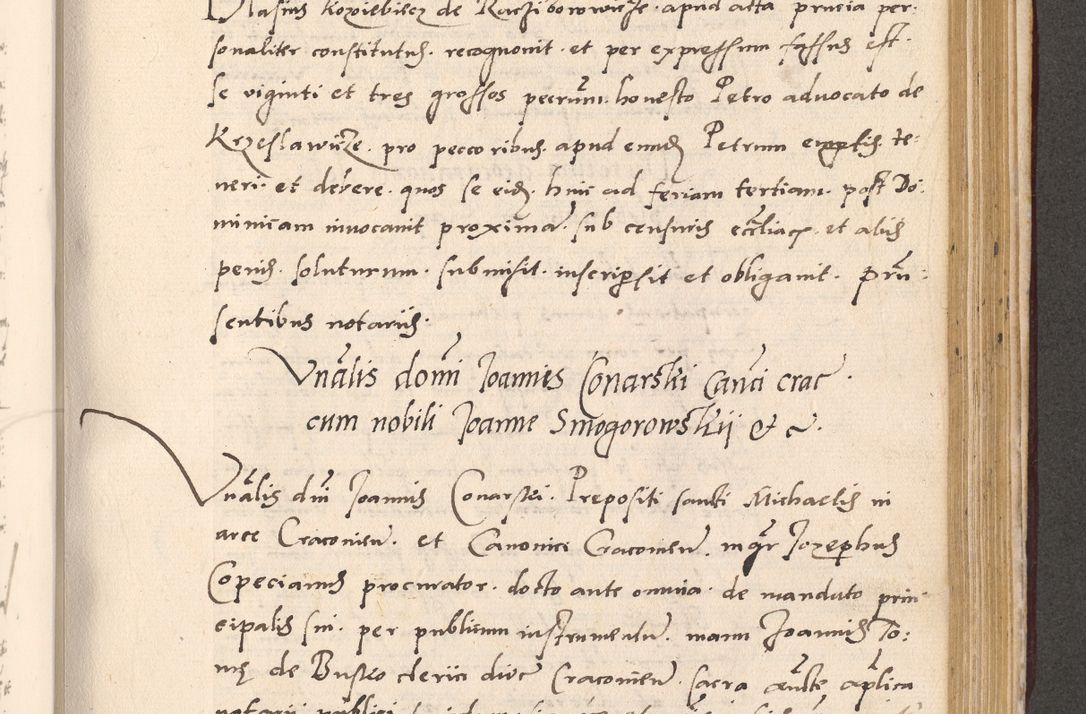 Blasius Koziebiesz de Racziborowicze. apud acta prucia per:
sonaliter constitutus. recognovit. et per expressum fassus est.
se viginti et tres grossos pecrum. honesto Petro advocato de
Krzeslawicze. pro peccoribus. apud eundem Petrum emptis te:
neri. et debere. quos se eidem. hinc ad feriam tertiam. post Do:
minicam invocavit proximam. sub censuris eccliacis. et aliis
penis. soluturum. submisit. inscripsit et obligavit. pru:
sentibus notariis.
Vnalis domi Joannis Conarski Canci crac.
cum nobili Joanne Smogorowskij & c.
Vnalis dni Joannis Conarski. Prepositi sancti Michaelis in
arce Cracovien. et Canonici Cracovien. mgr Jozephus
Copecianus procurator. docto ante omnia. de mandato prin
cipalis sui. per publicum instrumentum. manu Joannis To:
mę de Busko clerici dioc Cracovien. sacra aucte aplica
notarii publici